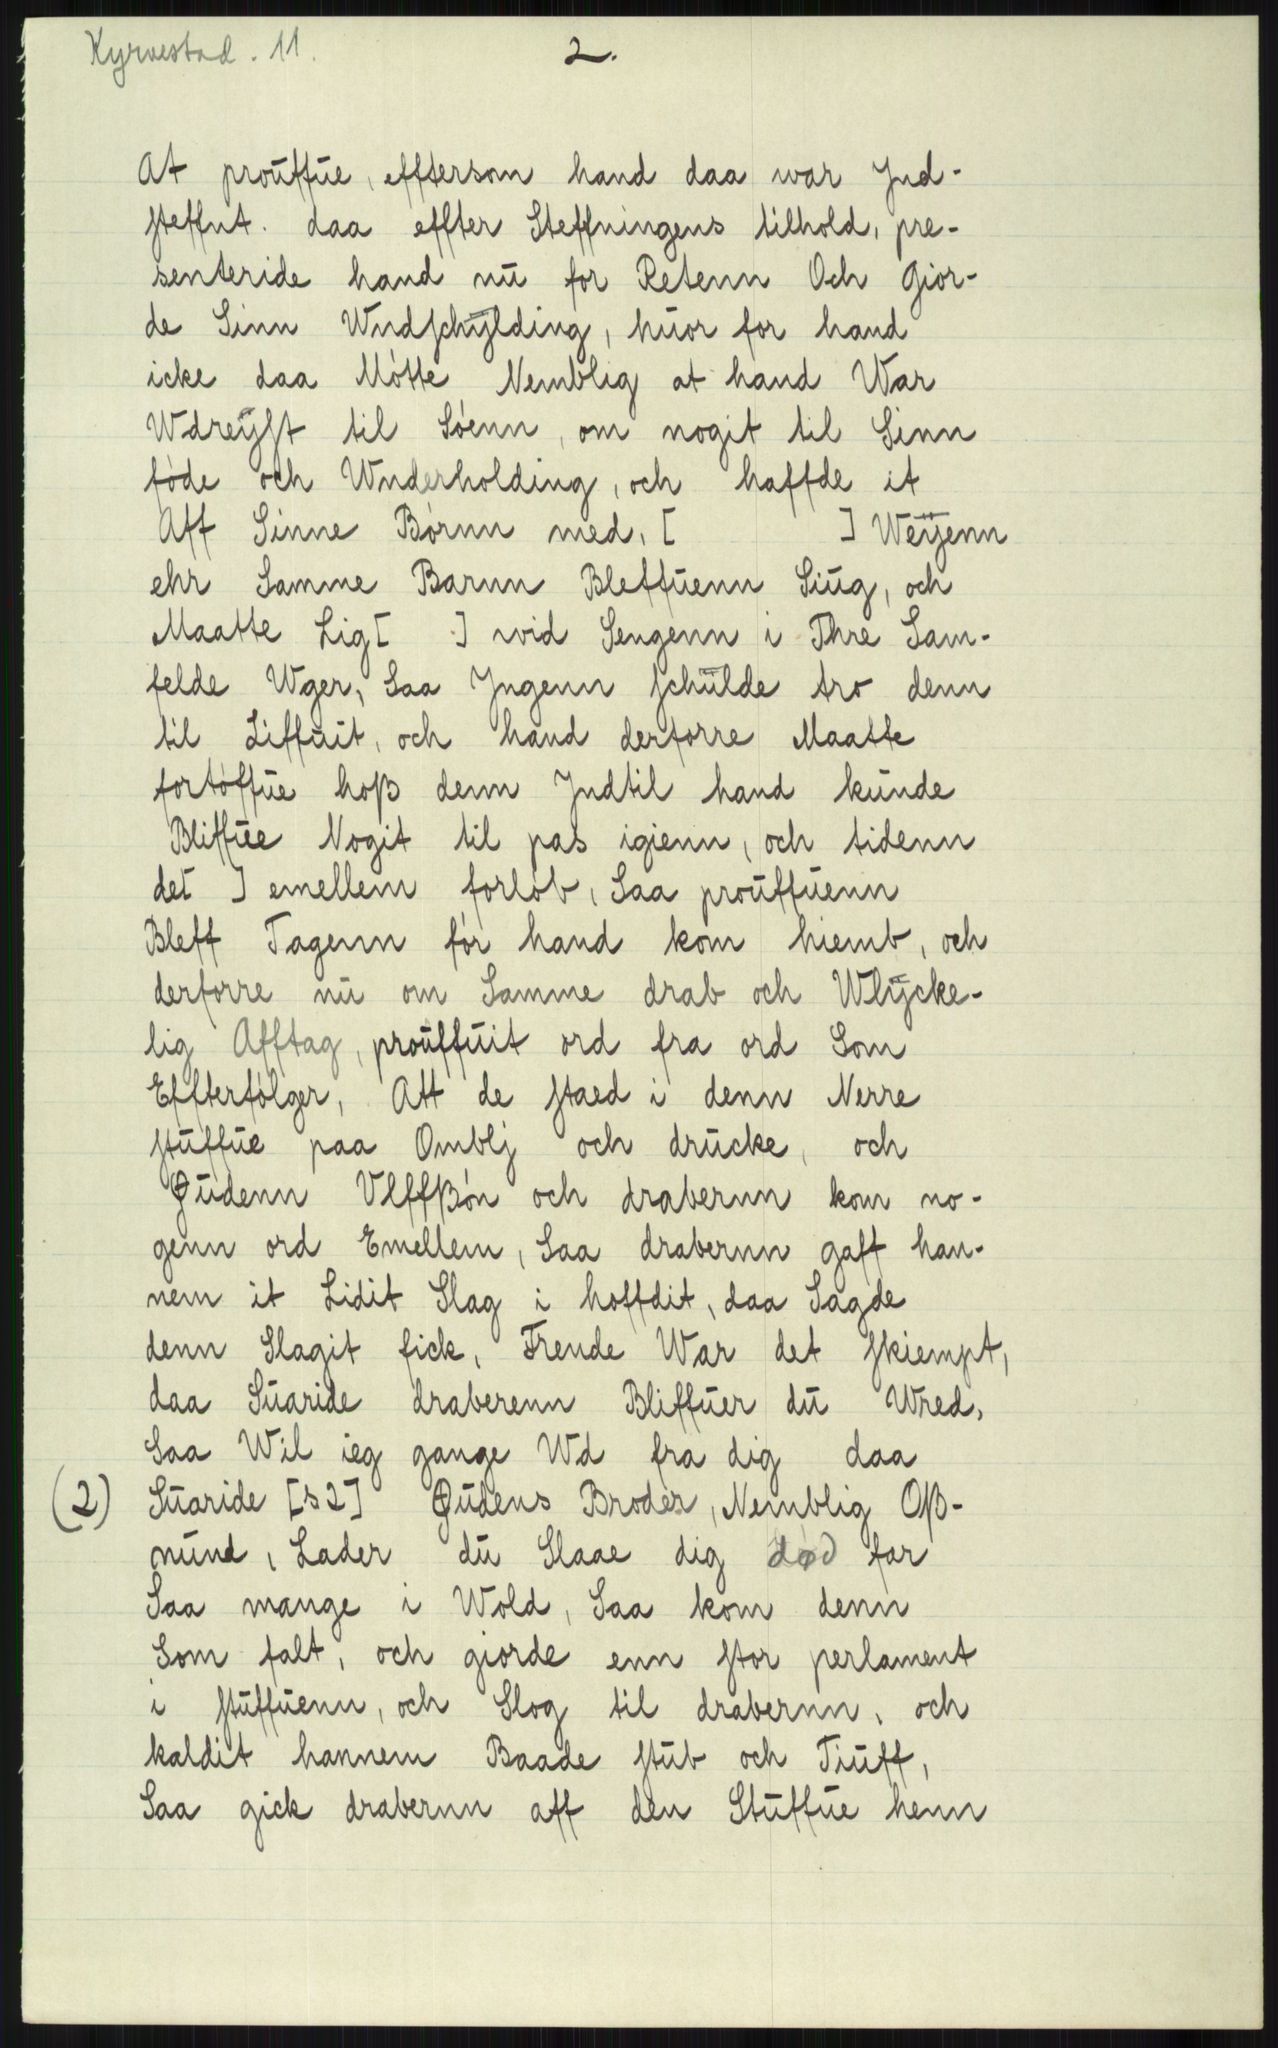 Kyrvestad. 11.
2.
At prouffue, efftersom hand daa war Jnd-
steffnt. daa effter Steffningens tilhold, pre-
senteride hand nu for Retenn Och Gior-
de Sinn Wndschylding, huor for hand
icke daa Møtte Nemblig at hand War
Wdreÿst til Søenn, om nogit til Sinn
føde och Wnderholding, och haffde it
Aff Sinne Børnn med, [ ] Weÿenn
ehr Samme Barnn Bleffuenn Siug, och
Maatte Lig[ ] wid Sengenn i Thre Sam-
felde Wger, Saa Jngenn schulde tro denn
til Liffuit, och hand derforre Maatte
fortøffue hoß denn Jndtil hand kunde
Bliffue Nogit til pas igienn, och tidenn
de[ ] emellem forløb, Saa prouffuenn
Bleff Tagenn før hand kom hiemb, och
derforre nu om Samme drab och Wlÿcke-
lig Afftag, prouffuit ord fra ord Som
Effterfølger, Att de staed i denn Nerre
stuffue paa Omblj och drucke, och
Øudenn Vlffßøn och drabernn kom no-
genn ord Emellem, Saa drabernn gaff han-
nem it Lidit Slag i hoffdit, daa Sagde
denn Slagit fick, Frende War det skiempt,
daa Suaride draberenn Bliffuer du Wred,
Saa Wil ieg gange Wd fra dig daa
(2) Suaride [s2] Øudens Broder, Nemblig Oß-
mund, Lader du Slaae dig død for
Saa mange i Wold, Saa kom denn
Som falt, och giorde enn stor perlament
i stuffuenn, och Slog til drabernn, och
kaldit hannem Baade stub och Tiuff,
Saa gick drabernn aff den Stuffue henn